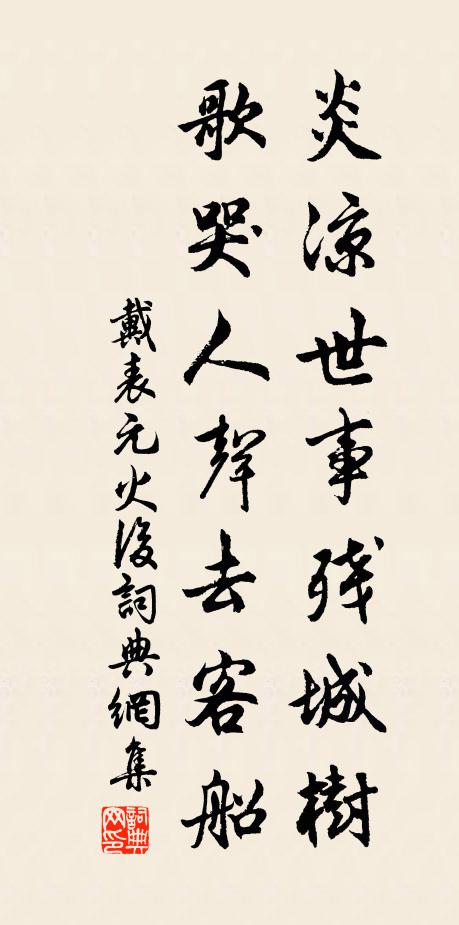 炎凉世事残城樹
歌哭人聲去客船
戴表元火後詞典網集
詞典网印